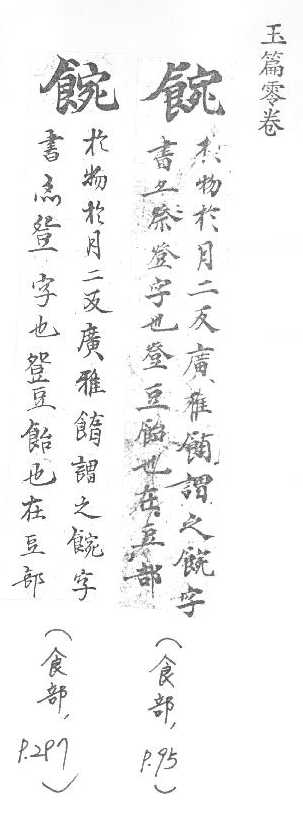 玉篇零卷
䬼
於物於月二反廣雅謂之䬼字
書亦䝁字也䝁豆飴也在豆部
(食部, P.95)
䬼
於物於月二反廣雅謂之䬼字
書亦䝁字也䝁豆飴也在豆部
(食部, P.297)